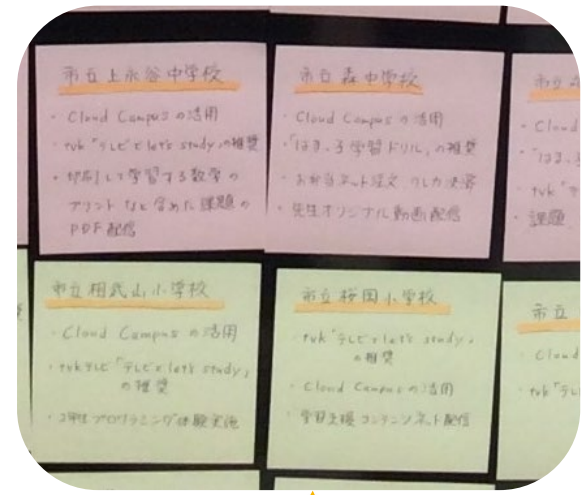 市立上永谷中学校
・Cloud Campus の活用
・tvk "テレビで let's study" の推奨
・印刷して学習する数学の
プリントなど含めた課題の
PDF配信
市立森中学校
・Cloud Campus の活用
・「はま.る学習ドリル」の推奨
・お弁当ネット注文 クレカ決済
・先生オリジナル動画配信
市立
・Cloud
・tvk
・課題
市立相武山小学校
・Cloud Campus の活用
・tvkテレビ「テレビで let's study」
の推奨
・プログラミング体験実施
市立桜岡小学校
・tvk「テレビで let's study」
の推奨
・Cloud Campus の活用
・学習支援コンテンツネット配信
市立
・Cloud
・tvk